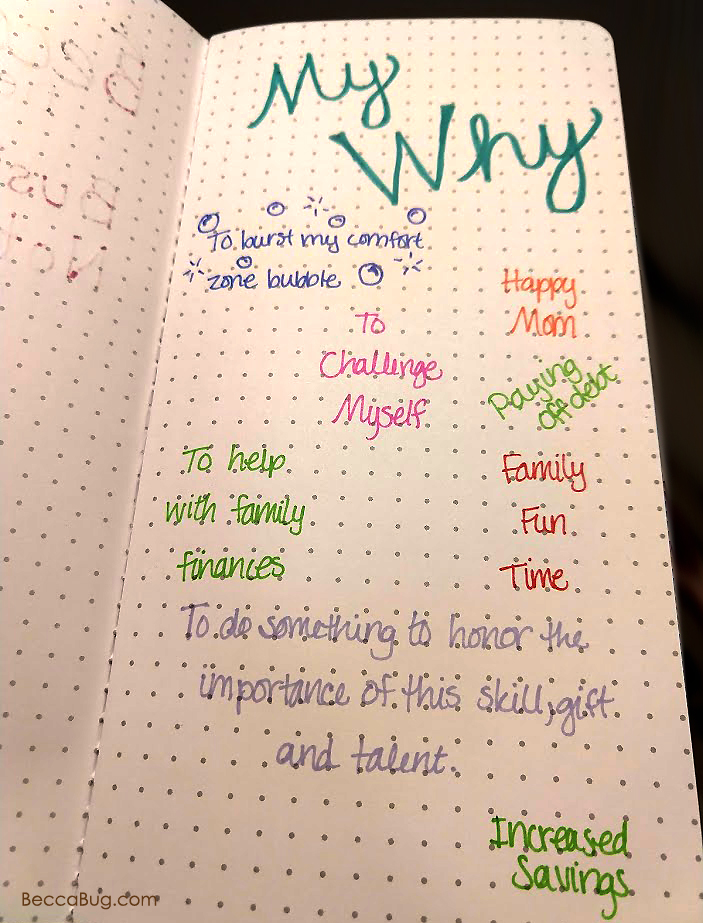 My
Why
To burst my comfort
zone bubble
Happy
Mom
To
Challenge
Myself
Paying
off debt
To help
with family
finances
Family
Fun
Time
To do something to honor the
importance of this skill, gift
and talent.
Increased
Savings
BeccaBug.com